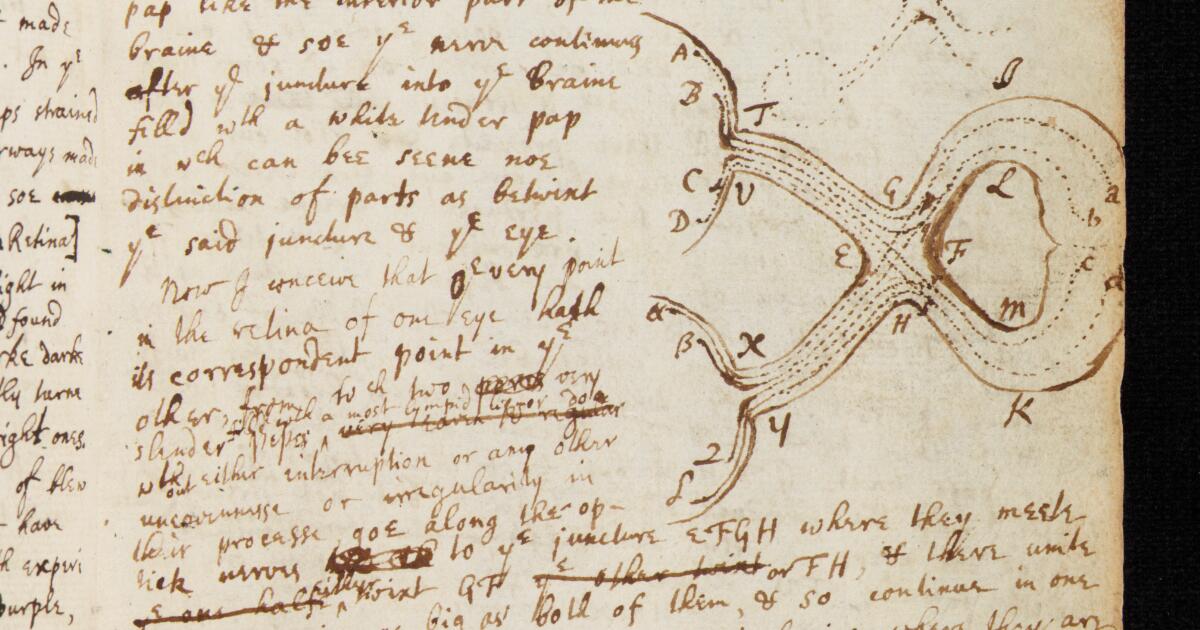 made
In yᵉ
ps strained
rways made
soe
Retina]
ight in
found
rke darke
tly turne
ight ones
of blew
have
h experi
purple,
pap like the interior part of
braine & soe yᵉ nerve continues
after yᵉ juncture into yᵉ Braine
filld wth a white tender pap
in wch can bee seene noe
distinction of parts as betwixt
yᵉ said juncture & yᵉ eye.
Now I conceive that every point
in the retina of one eye hath
its correspondent point in yᵉ
other, from wch two very
slender pipes filled wth a most limpid liquor doe
wthout either interruption or any other
unevennesse or irregularity in
their processe, goe along the op-
tick nerves to yᵉ juncture EFGH where they meete
either twixt GF or FH, & there unite
big as both of them, & so continue in one
where they are
A
B
T
C
D
V
G
E
F
L
I
a
b
c
d
α
β
X
H
M
K
Y